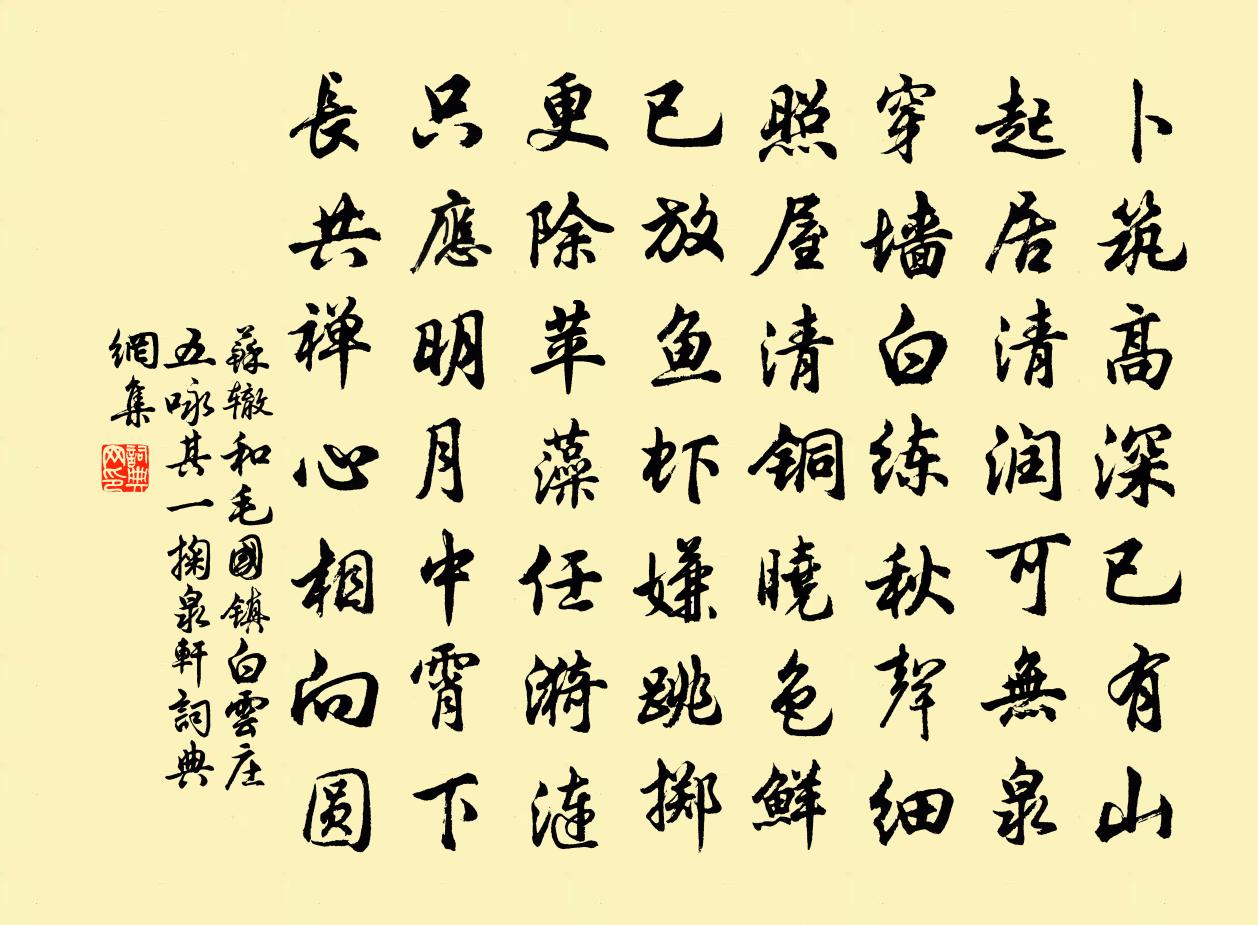 卜筑高深已有山
起居清润可無泉
穿墙白练秋声細
照屋清铜曉色鮮
已放鱼虾嫌跳掷
更除苹藻任漪涟
只應明月中霄下
長共禅心相向圆
蘇辙和毛國镇白雲庄
五咏其一掬泉軒詞典
網集
詞典网印